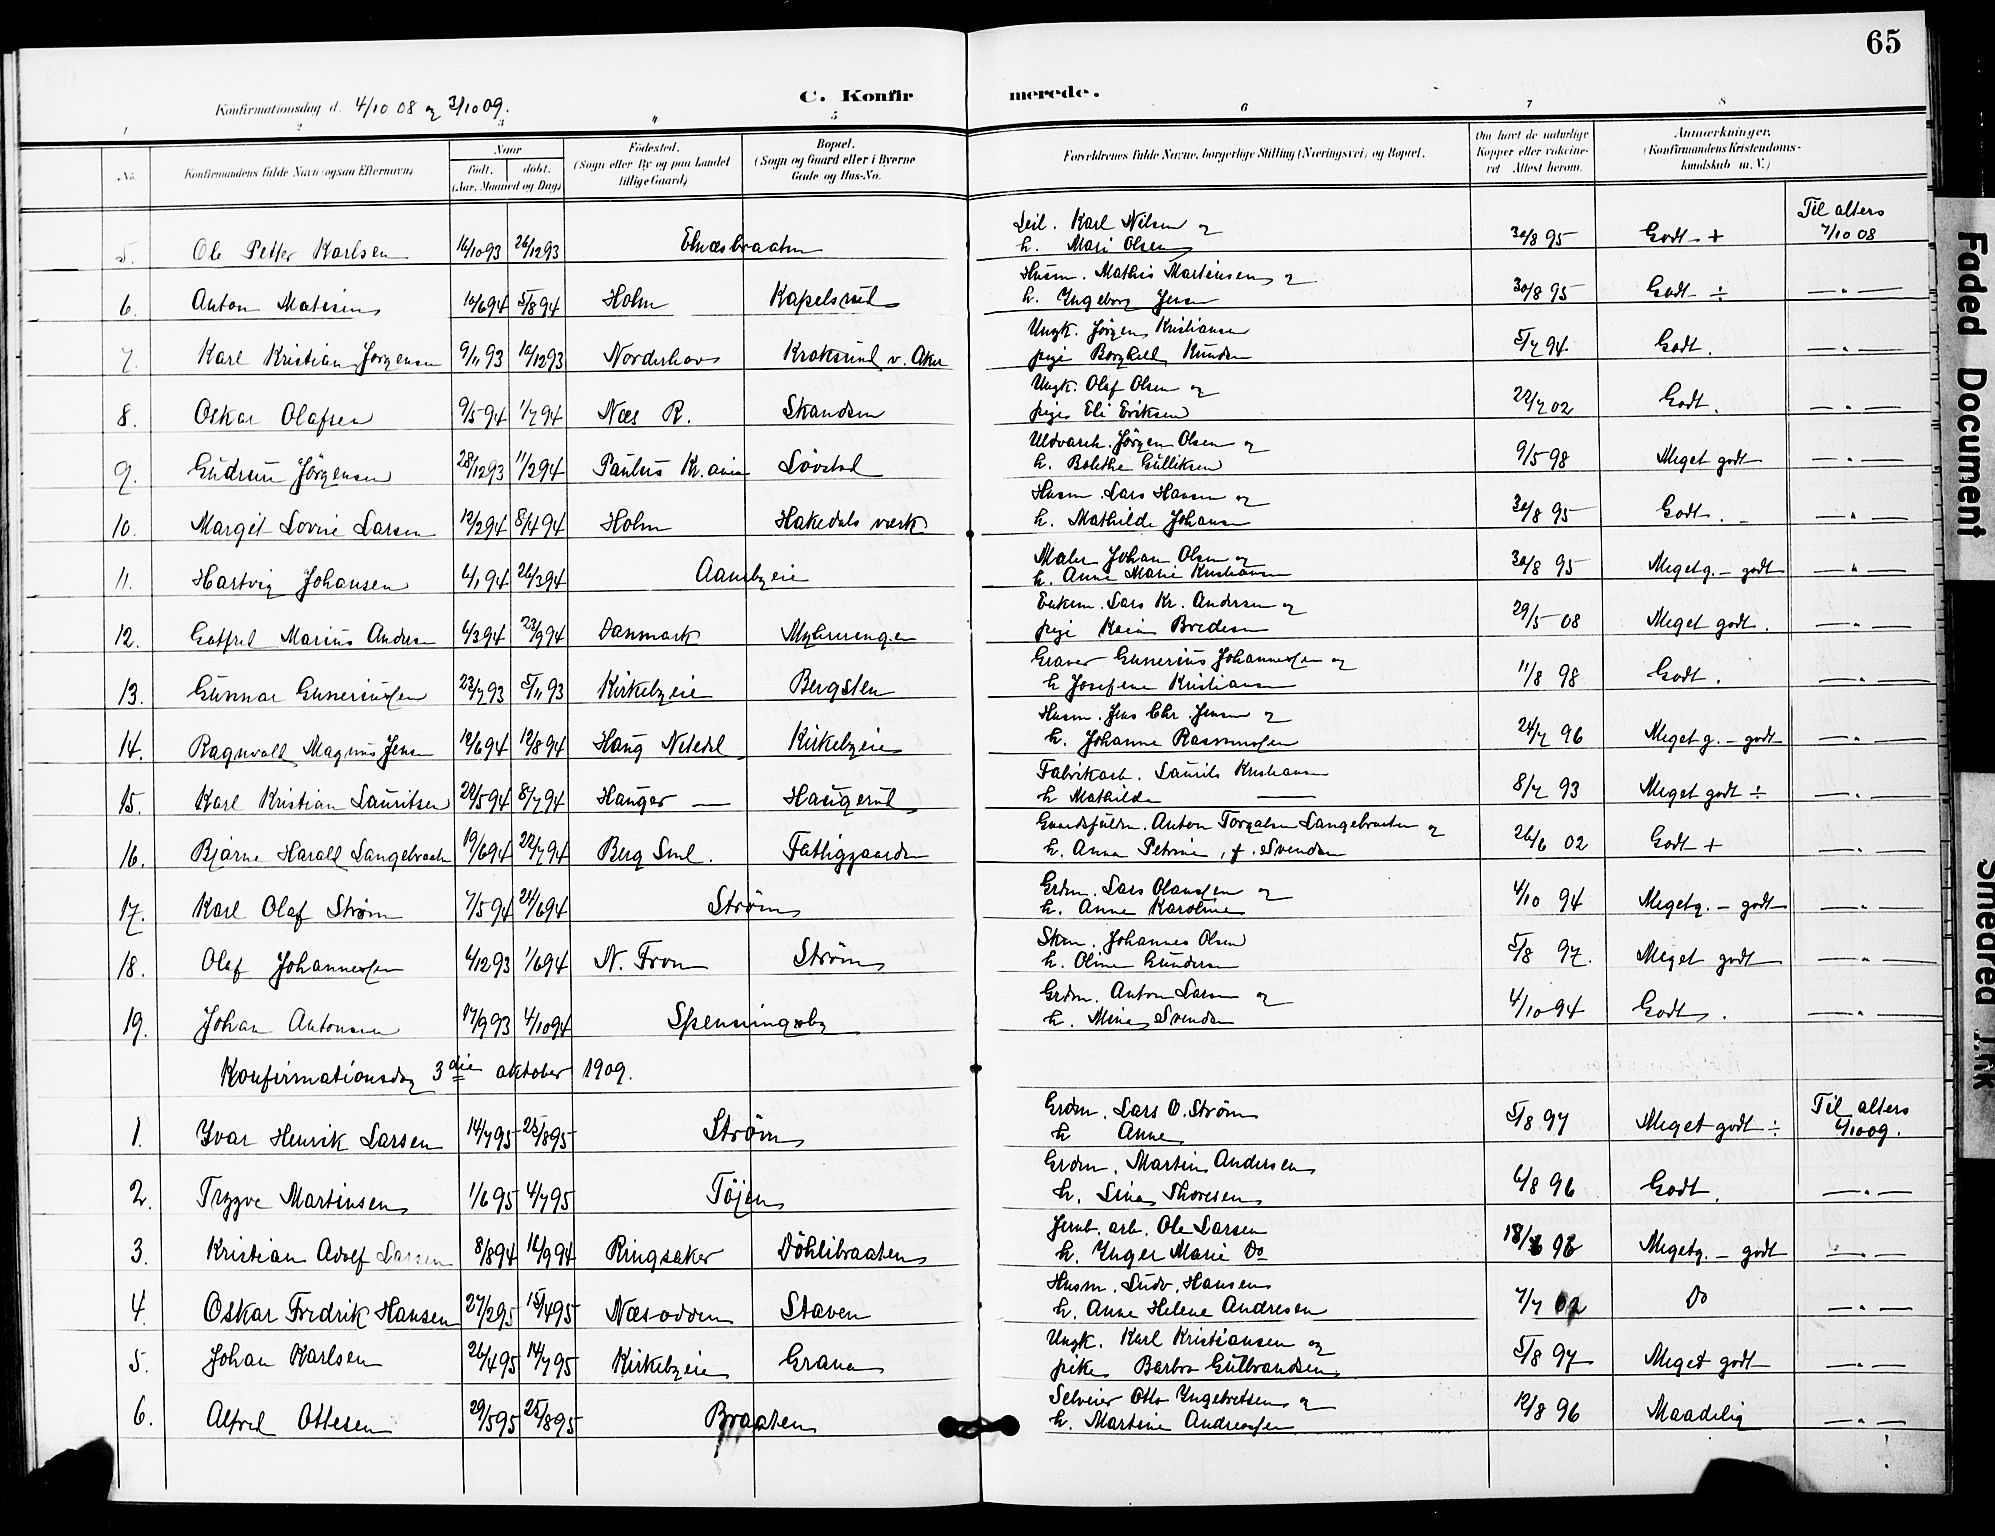 65
Konfirmationsdag d. 4/10 08 og 3/10 09.
C. Konfirmerede.
1 2 3 4 5 6 7 8
No. Konfirmandens fulde Navn (ogsaa Efternavn) Naar Født. døbt. (Aar, Maaned og Dag) Fødested. (Sogn eller By og paa Landet tillige Gaard) Bopæl. (Sogn og Gaard eller i Byerne Gade og Hus-No. Forældrenes fulde Navne, borgerlige Stilling (Næringsvei) og Bopæl. Om havt de naturlige Kopper eller vakcineret Attest herom. Anmærkninger. (Konfirmandens Kristendomskundskab m. V.)
5. Ole Petter Karlsen 16/10 93 26/12 93 Elnæsbraaten Leil. Karl Nilsen og h. Mari Olsen 30/8 95 Godt + Til alters 7/10 08
6. Anton Matisen 10/6 94 5/8 94 Holm Kapelsrud Husm. Mathis Martinsen og h. Ingeborg Jensen 30/8 95 Godt ÷ — " —
7. Karl Kristian Jørgensen 9/11 93 16/12 93 Norderhov Kroksund v. Aker Ungk. Jørgen Kristiansen pige Borghild Knudsen 5/7 94 Godt. — " —
8. Oskar Olafsen 9/5 94 1/7 94 Næs R. Skandsen Ungk. Olaf Olsen og pige Eli Eriksen 22/7 02 Godt. — " —
9. Gudrun Jørgensen 28/12 93 11/2 94 Paulus Kr.ania Løvstad Uldvarearb. Jørgen Olsen og h. Bolethe Gulliksen 9/5 98 Meget godt — " —
10. Margit Lovise Larsen 12/2 94 8/4 94 Holm Hakedals værk Husm. Lars Hansen og h. Mathilde Johansen 30/8 95 Godt. — " —
11. Hartvig Johansen 6/1 94 26/3 94 Aanebyeie Maler Johan Olsen og h. Anne Marie Kristiansen 30/8 95 Meget g. – godt — " —
12. Gotfred Marius Andersen 6/3 94 23/9 94 Danmark Myhrerengen Enkem. Lars Kr. Andersen og pige Karin Bredesen 29/5 08 Meget godt. — " —
13. Gunnar Guneriussen 23/7 93 5/11 93 Kirkebyeie Bergsten Graver Gunerius Johannessen og h Josefine Kristiansen 11/8 98 Godt. — " —
14. Ragnvald Magnus Jensen 12/6 94 12/8 94 Haug Nitedal Kirkebyeie Husm. Jens Chr. Jensen og h. Johanne Rasmussen 24/7 96 Meget g. – godt — " —
15. Karl Kristian Lauritsen 20/5 94 8/7 94 Hauger — Haugerud Fabrikarb. Laurits Kristiansen h Mathilde — 8/7 93 Meget godt ÷ — " —
16. Bjarne Harald Langebraaten 19/6 94 22/7 94 Berg Sml. Fattiggaarden Gaardsfuldm. Anton Torgalsen Langebraaten og h. Anna Petrine, f. Svendsen 26/6 02 Godt + — " —
17. Karl Olaf Strøm 7/5 94 24/6 94 Strøm Grdm. Lars Olaussen og h. Anne Karoline 4/10 94 Meget g. – godt — " —
18. Olaf Johannessen 6/12 93 1/6 94 N. Fron Strøm Skm. Johannes Olsen h. Oline Gundersen 5/8 97. Meget godt — " —
19. Johan Antonsen 17/9 93 4/10 94 Spenningsby Grdm. Anton Larsen og h. Mina Svendsen 4/10 94 Godt. — " —
Konfirmationsdag 3die oktober 1909.
1. Ivar Henrik Larsen 14/7 95 25/8 95 Strøm Grdm. Lars O. Strøm h Anne 5/8 97 Meget godt ÷ Til alters 6/10 09.
2. Trygve Martinsen 1/6 95 4/7 95 Tøjen Grdm. Martin Andersen h. Lina Thoresen 6/8 96 Godt. — " —
3. Kristian Adolf Larsen 8/8 94 16/9 94 Ringsaker Døhlibraaten Jernb. arb. Ole Larsen h. Inger Marie Do 18/8 96 Meget g. – godt — " —
4. Oskar Fredrik Hansen 27/2 95 15/4 95 Næsodden Staven Husm. Ludv. Hansen h. Anne Helene Andresen 7/7 02 Do — " —
5. Johan Karlsen 26/4 95 14/7 95 Kirkebyeie Grana Ungk. Karl Kristiansen og pike Barbro Gulbrandsen 5/8 97 Meget godt — " —
6. Alfred Ottesen 29/5 95 25/8 95 Braaten Selveier Otto Ingebretsen og h. Martine Andreassen 12/8 96 Maadelig — " —
Faded Document
Smeared Ink